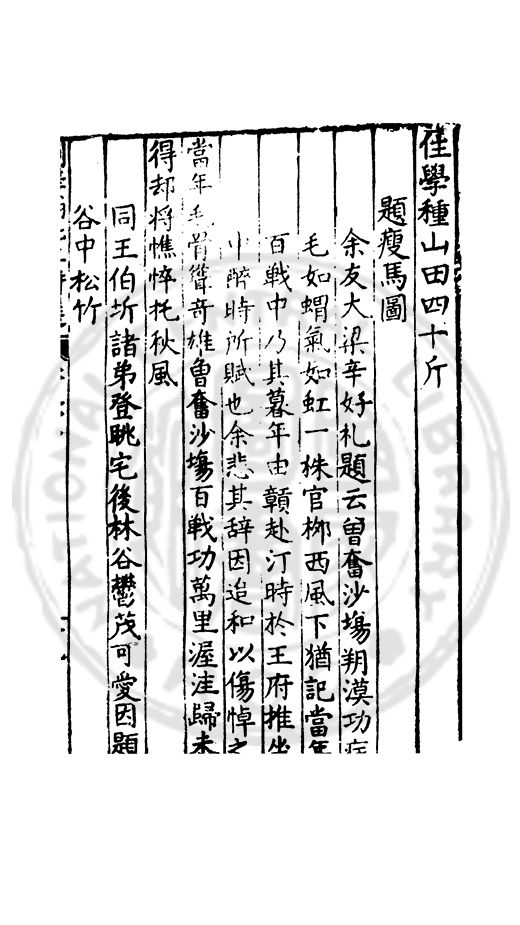 佳學種山田四十斤
題瘦馬圖
余友大梁辛好礼題云曽奮沙塲朔漠功
毛如蝟氣如虹一株官栁西風下猶記當年
百戦中乃其暮年由贑赴汀時於王府推
中醉時所賦也余悲其辞因追和以傷悼之
當年毛骨聳奇雄曽奮沙塲百戦功萬里渥洼歸未
得却将憔悴托秋風
同王伯圻諸弟登眺宅後林谷鬱茂可愛因題
谷中松竹